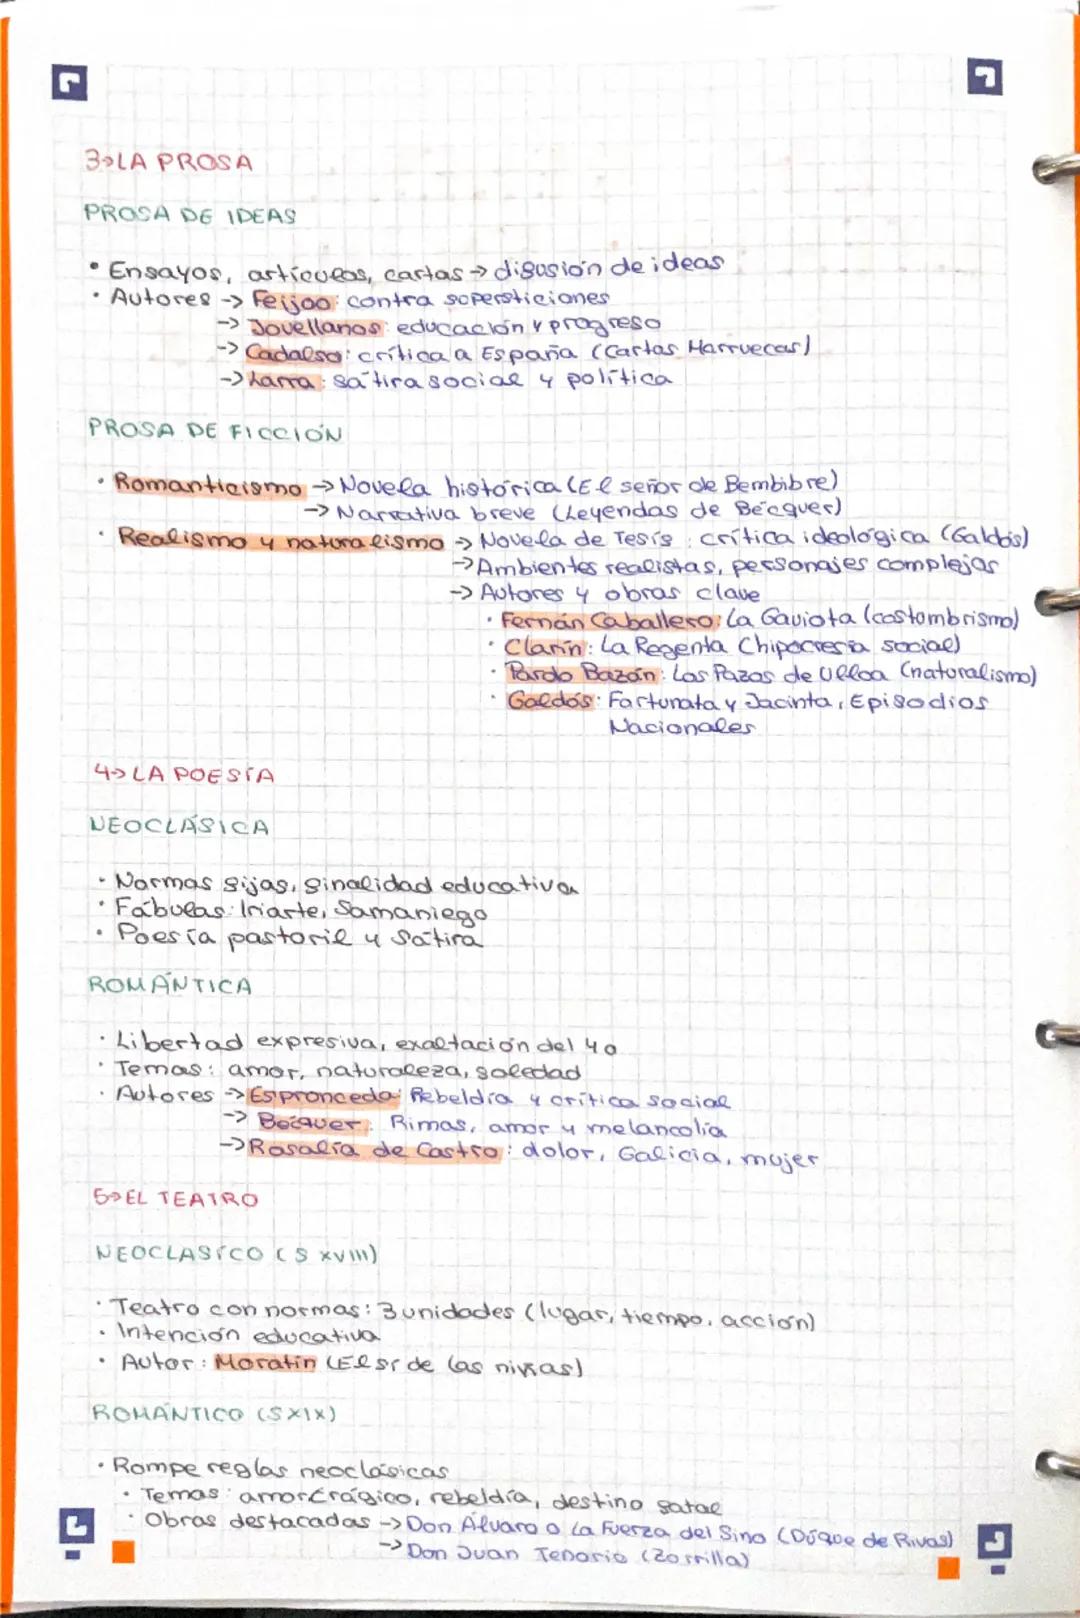 3→LA PROSA
PROSA DE IDEAS
• Ensayos, artículos, cartas → difusión de ideas
• Autores → Feijoo: contra supersticiones
→ Jovellanos: educación y progreso
→ Cadalso: crítica a España (Cartas Marruecas)
→ Larra: sátira social y política
PROSA DE FICCIÓN
• Romanticismo → Novela histórica (El señor de Bembibre)
→ Narrativa breve (Leyendas de Bécquer)
• Realismo y naturalismo → Novela de Tesis: crítica ideológica (Galdós)
→ Ambientes realistas, personajes complejos
→ Autores y obras clave
• Fernán Caballero: La Gaviota (costumbrismo)
• Clarín: La Regenta (hipocresía social)
• Pardo Bazán: Los Pazos de Ulloa (naturalismo)
• Galdós: Fortunata y Jacinta, Episodios
Nacionales
4→ LA POESÍA
NEOCLÁSICA
• Normas fijas, finalidad educativa
• Fábulas: Iriarte, Samaniego
• Poesía pastoril y sátira
ROMÁNTICA
• Libertad expresiva, exaltación del yo
• Temas: amor, naturaleza, soledad
• Autores → Espronceda: Rebeldía y crítica social
→ Bécquer: Rimas, amor y melancolía
→ Rosalía de Castro: dolor, Galicia, mujer
5→ EL TEATRO
NEOCLASÍCO (S XVIII)
• Teatro con normas: 3 unidades (lugar, tiempo, acción)
• Intención educativa
• Autor: Moratín (El sí de las niñas)
ROMÁNTICO (S XIX)
• Rompe reglas neoclásicas
• Temas: amor trágico, rebeldía, destino fatal
• Obras destacadas → Don Álvaro o La Fuerza del Sino (Duque de Rivas)
→ Don Juan Tenorio (Zorrilla)